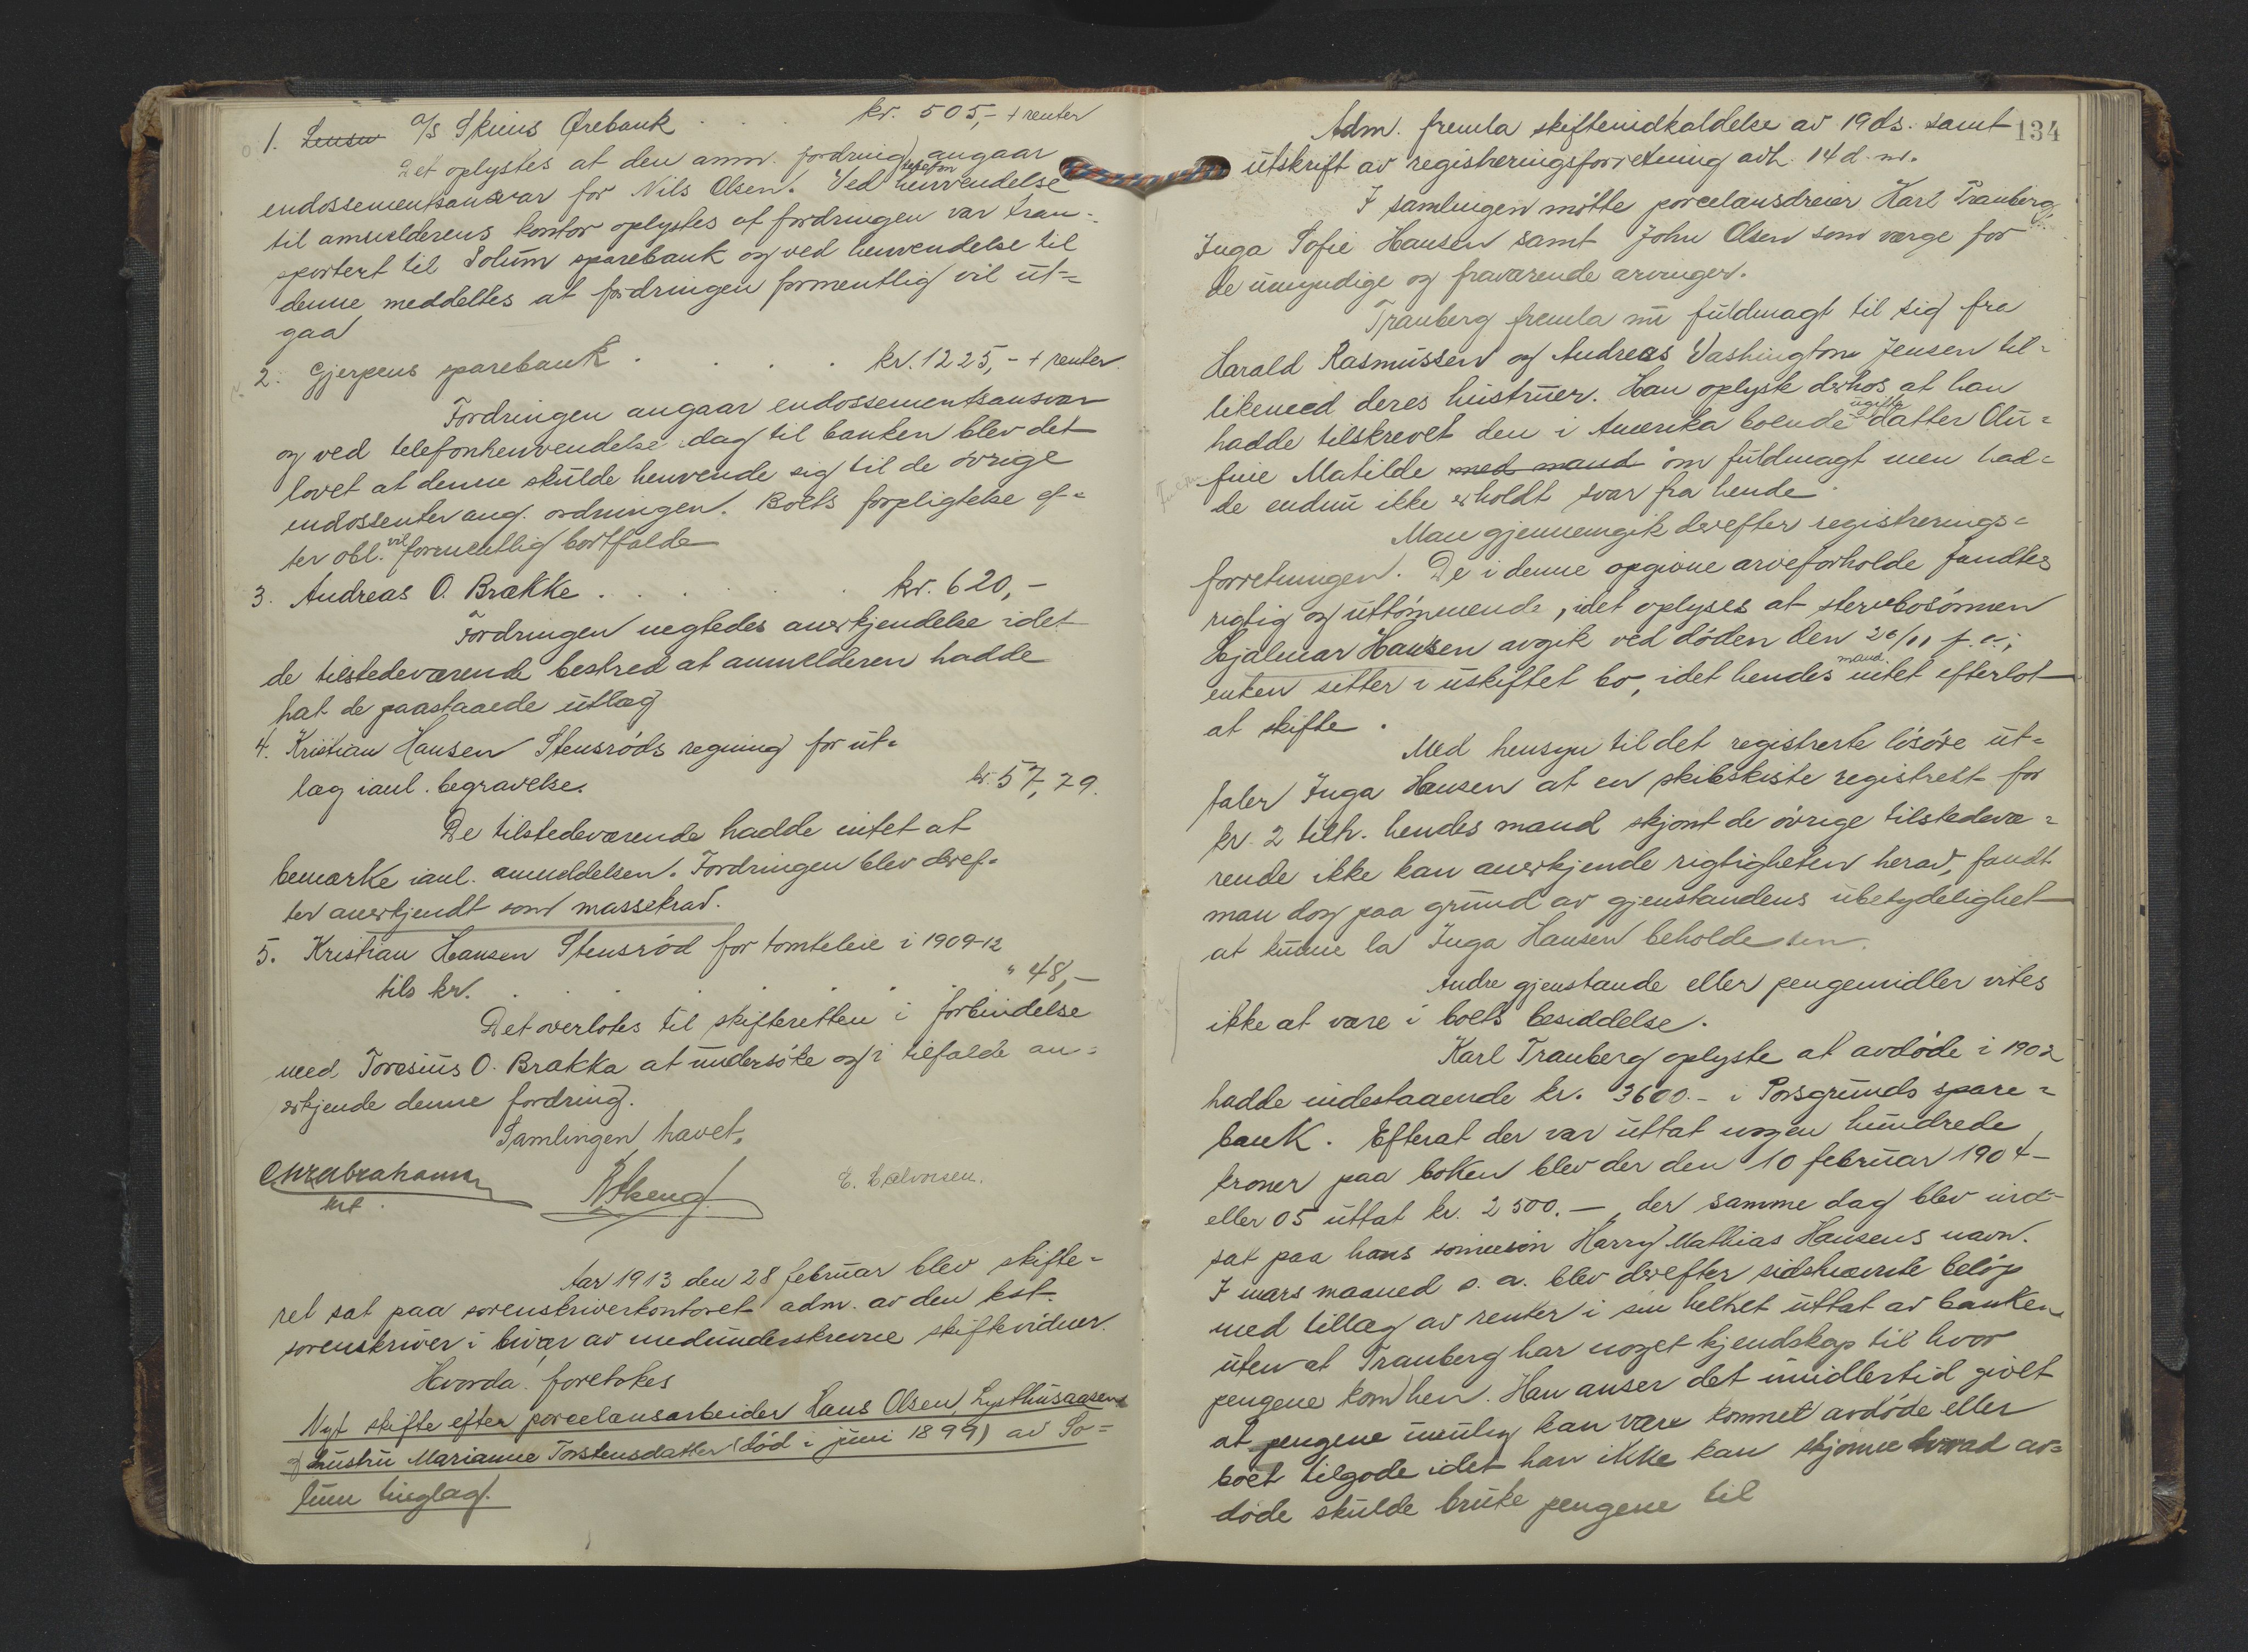 1. Lensm A/S Skiens Ørebank . . . kr. 505,- + renter
Det oplystes at den anm. fordring angaar
endossementsansvar for Nils Olsen. Ved telefon henvendelse
til anmelderens kontor oplystes at fordringen var tran-
sportert til Solum sparebank og ved henvendelse til
denne meddeltes at fordringen formentlig vil ut-
gaa
2. Gjerpens sparebank . . . . kr. 1225,- + renter
Fordringen angaar endossementsansvar
og ved telefonhenvendelse idag til banken blev det
lovet at denne skulde henvende sig til de øvrige
endossenter ang. ordningen. Boets forpligtelse ef-
ter obl. vil formentlig bortfalde
3. Andreas O. Brække . . . . . . kr. 620,-
Fordringen negtedes anerkjendelse idet
de tilstedeværende bestred at anmelderen hadde
hat de paastaaede utlæg
4. Kristian Hansen Stensrøds regning for ut-
læg ianl. begravelse. kr. 57,29.
De tilstedeværende hadde intet at
bemærke ianl. anmeldelsen. Fordringen blev deref-
ter anerkjendt som massekrav.
5. Kristian Hansen Stensrød for tomteleie i 1909-12
tils kr. . . . . . . " 48,-
Det overlotes til skifteretten i forbindelse
med Toresius O. Brække at undersøke og i tilfælde an-
erkjende denne fordring.
Samlingen hævet.
Chr Abrahamsen
E. Halvorsen.
Aar 1913 den 28 februar blev skifte-
ret sat paa sorenskriverkontoret adm. av den kst.
sorenskriver i bivær av medunderskrevne skiftevidner.
Hvorda foretokes
Nyt skifte efter porcelænsarbeider Hans Olsen, Lysthusaasen
og hustru Marianne Torstensdatter (død i juni 1899) av So-
lum tinglag.
134
Adm. fremla skifteindkaldelse av 19 ds. samt
utskrift av registreringsforretning avh. 14 d. m.
I samlingen møtte porcelænsdreier Karl Tranberg,
Inga Sofie Hansen samt John Olsen som verge for
de umyndige og fraværende arvinger.
Tranberg fremla nu fuldmagt til sig fra
Harald Rasmussen og Andreas Washington Jensen til-
likemed deres hustruer. Han oplyste derhos at han
hadde tilskrevet den i Amerika boende ugifte datter Olu-
fine Matilde med mand om fuldmagt men had-
de endnu ikke erholdt svar fra hende.
Man gjennemgik derefter registrerings-
forretningen. De i denne opgivne arveforholde fandtes
rigtig og uttømmende, idet oplyses at stervbosønnen
Hjalmar Hansen avgik ved døden den 26/11 f. a.;
enken sitter i uskiftet bo, idet hendes mand intet efterlot
at skifte.
Med hensyn til det registrerte løsøre ut-
taler Inga Hansen at en skibskiste registrert for
kr. 2 tilh. hendes mand skjønt de øvrige tilstedevæ-
rende ikke kan anerkjende rigtigheten herav, fandt
man dog paa grund av gjenstandens ubetydelighet
at kunne la Inga Hansen beholde den.
Andre gjenstande eller pengemidler vites
ikke at være i boets besiddelse.
Karl Tranberg oplyste at avdøde i 1902
hadde indestaaende kr. 3600.- i Porsgrunds spare-
bank. Efterat der var uttat nogen hundrede
kroner paa boken blev der den 10 februar 1904
eller 05 uttat kr. 2500.-, der samme dag blev ind-
sat paa hans sønnesøn Harry Mathias Hansens navn.
I mars maaned s. a. blev derefter sidstnævnte beløp
med tillæg av renter i sin helhet uttat av banken
uten at Tranberg har noget kjendskap til hvor
pengene kom hen. Han anser det imidlertid givet
at pengene umulig kan være kommet avdøde eller
boet tilgode idet han ikke kan skjønne hvad av-
døde skulde bruke pengene til